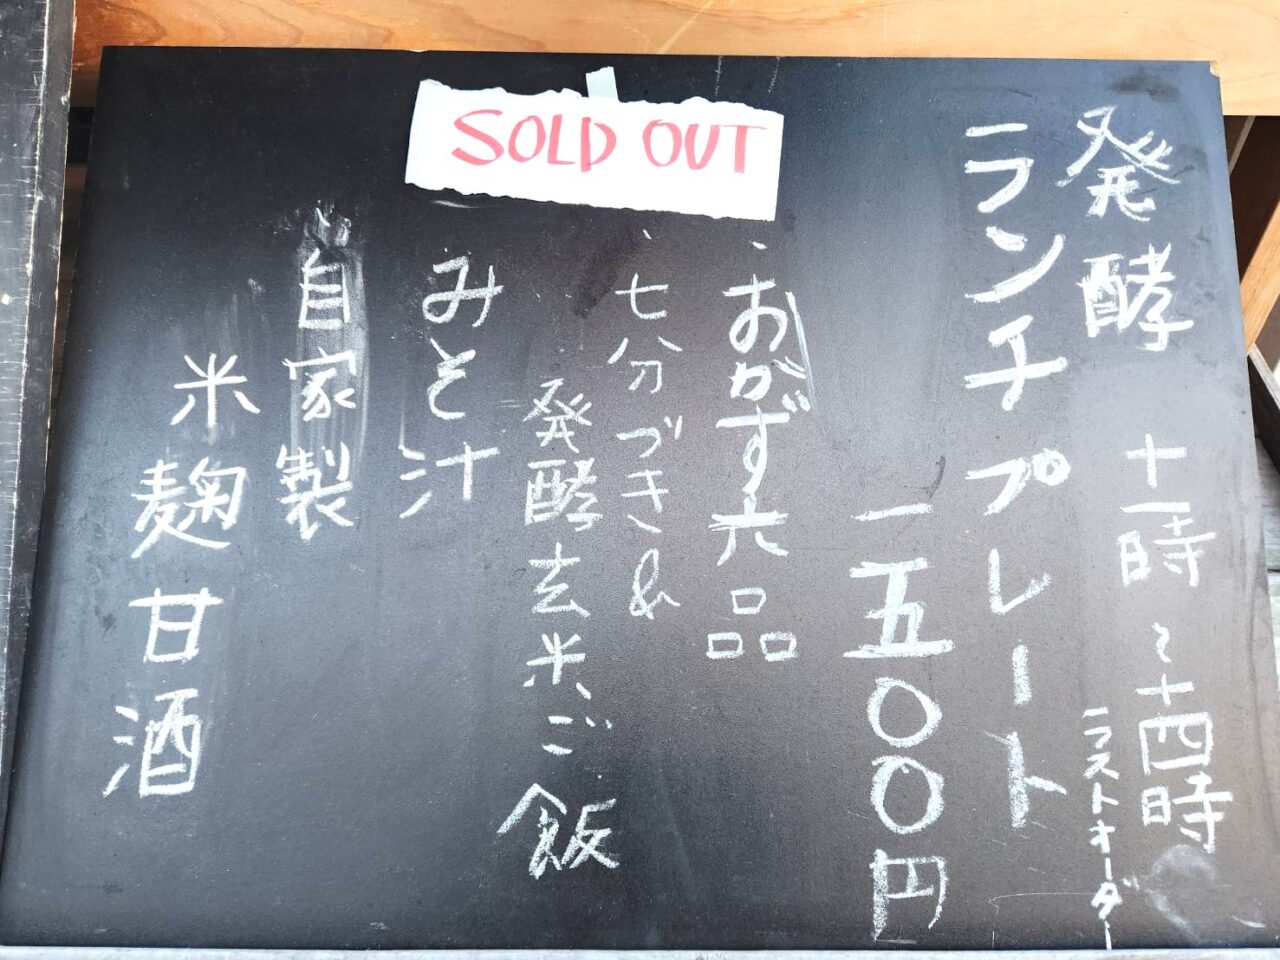 SOLD OUT
発酵
十一時〜十四時
ラストオーダー
ランチプレート
一五〇〇円
・おかず六品
・七分づき&
発酵玄米ご飯
みそ汁
自家製
米麹甘酒